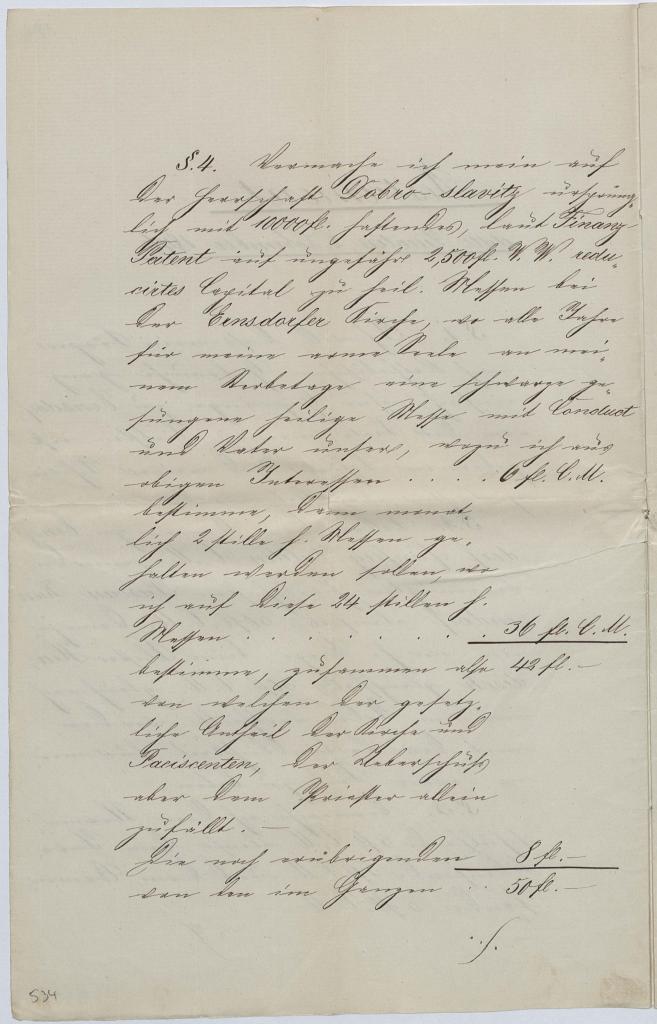 §. 4. Vermache ich mein auf
der Herrschaft Dobro-slavitz ursprüng-
lich mit 10000 fl. haftendes, laut Finanz-
Patent auf ungefähr 2,500 fl. W. W. redu-
cirtes Capital zu heil. Messen bei
der Ernsdorfer Kirche, wo alle Jahre
für meine arme Seele an mei-
nem Sterbetage eine schwarze ge-
sungene heilige Messe mit Conduct
und Vater unser, wozu ich aus
obigen Interessen . . . . 6 fl. C. M.
bestimme, dann monat-
lich 2 stille h. Messen ge-
halten werden sollen, wo
ich auf diese 24 stillen h.
Messen . . . . . . . 36 fl. C. M.
bestimme, zusammen also 42 fl. –
von welchen der gesetz-
liche Antheil der Kirche und
Paciscenten, der Ueberschuß
aber dem Priester allein
zufällt. –
Die noch erübrigenden 8 fl. –
von den im Ganzen . . 50 fl. –
./.
534